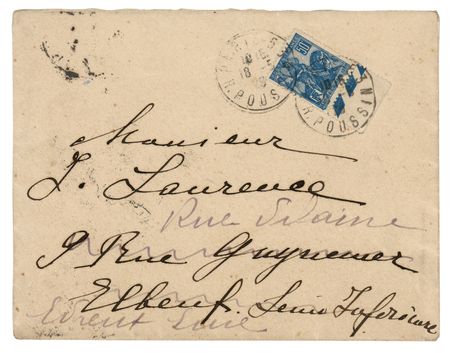 PARIS
18
R. POUSSIN
50
R. POUSSIN
Monsieur
L. Laurence
Rue
9 Rue Guynemer
Elbeuf. Seine Inférieure
Eure